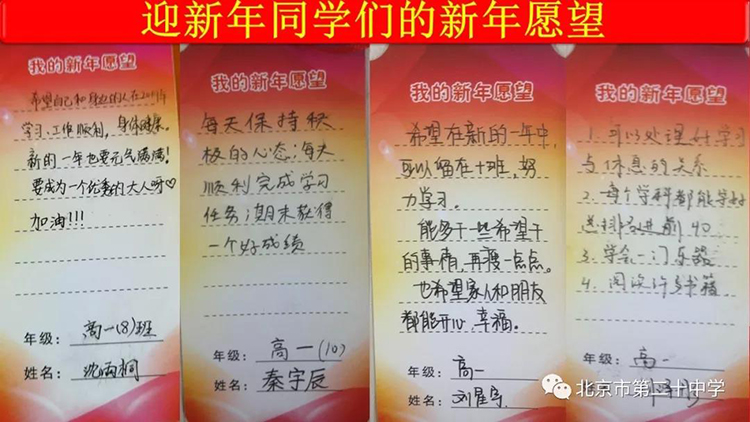 迎新年同学们的新年愿望
我的新年愿望
希望自己和身边的人在2019年
学习、工作顺利,身体健康。
新的一年也要元气满满!
要成为一个优秀的大人呀♡
加油!!!
年级:高一(8)班
姓名:沈雨桐
我的新年愿望
每天保持积
极的心态;每天
顺利完成学习
任务;期末获得
一个好成绩
年级:高一(10)
姓名:秦宇辰
我的新年愿望
希望在新的一年中,
可以留在十班,努
力学习。
能多干一些希望干
的事情,再瘦一点点。
也希望家人和朋友
都能开心、幸福。
年级:高一
姓名:刘星宇
我的新年愿望
1. 可以处理好学习
与休息的关系
2. 每个学科都能学好
总排名进前40
3. 学会一门乐器
4. 阅读许多书籍
年级:高一
姓名:
北京市第二十中学